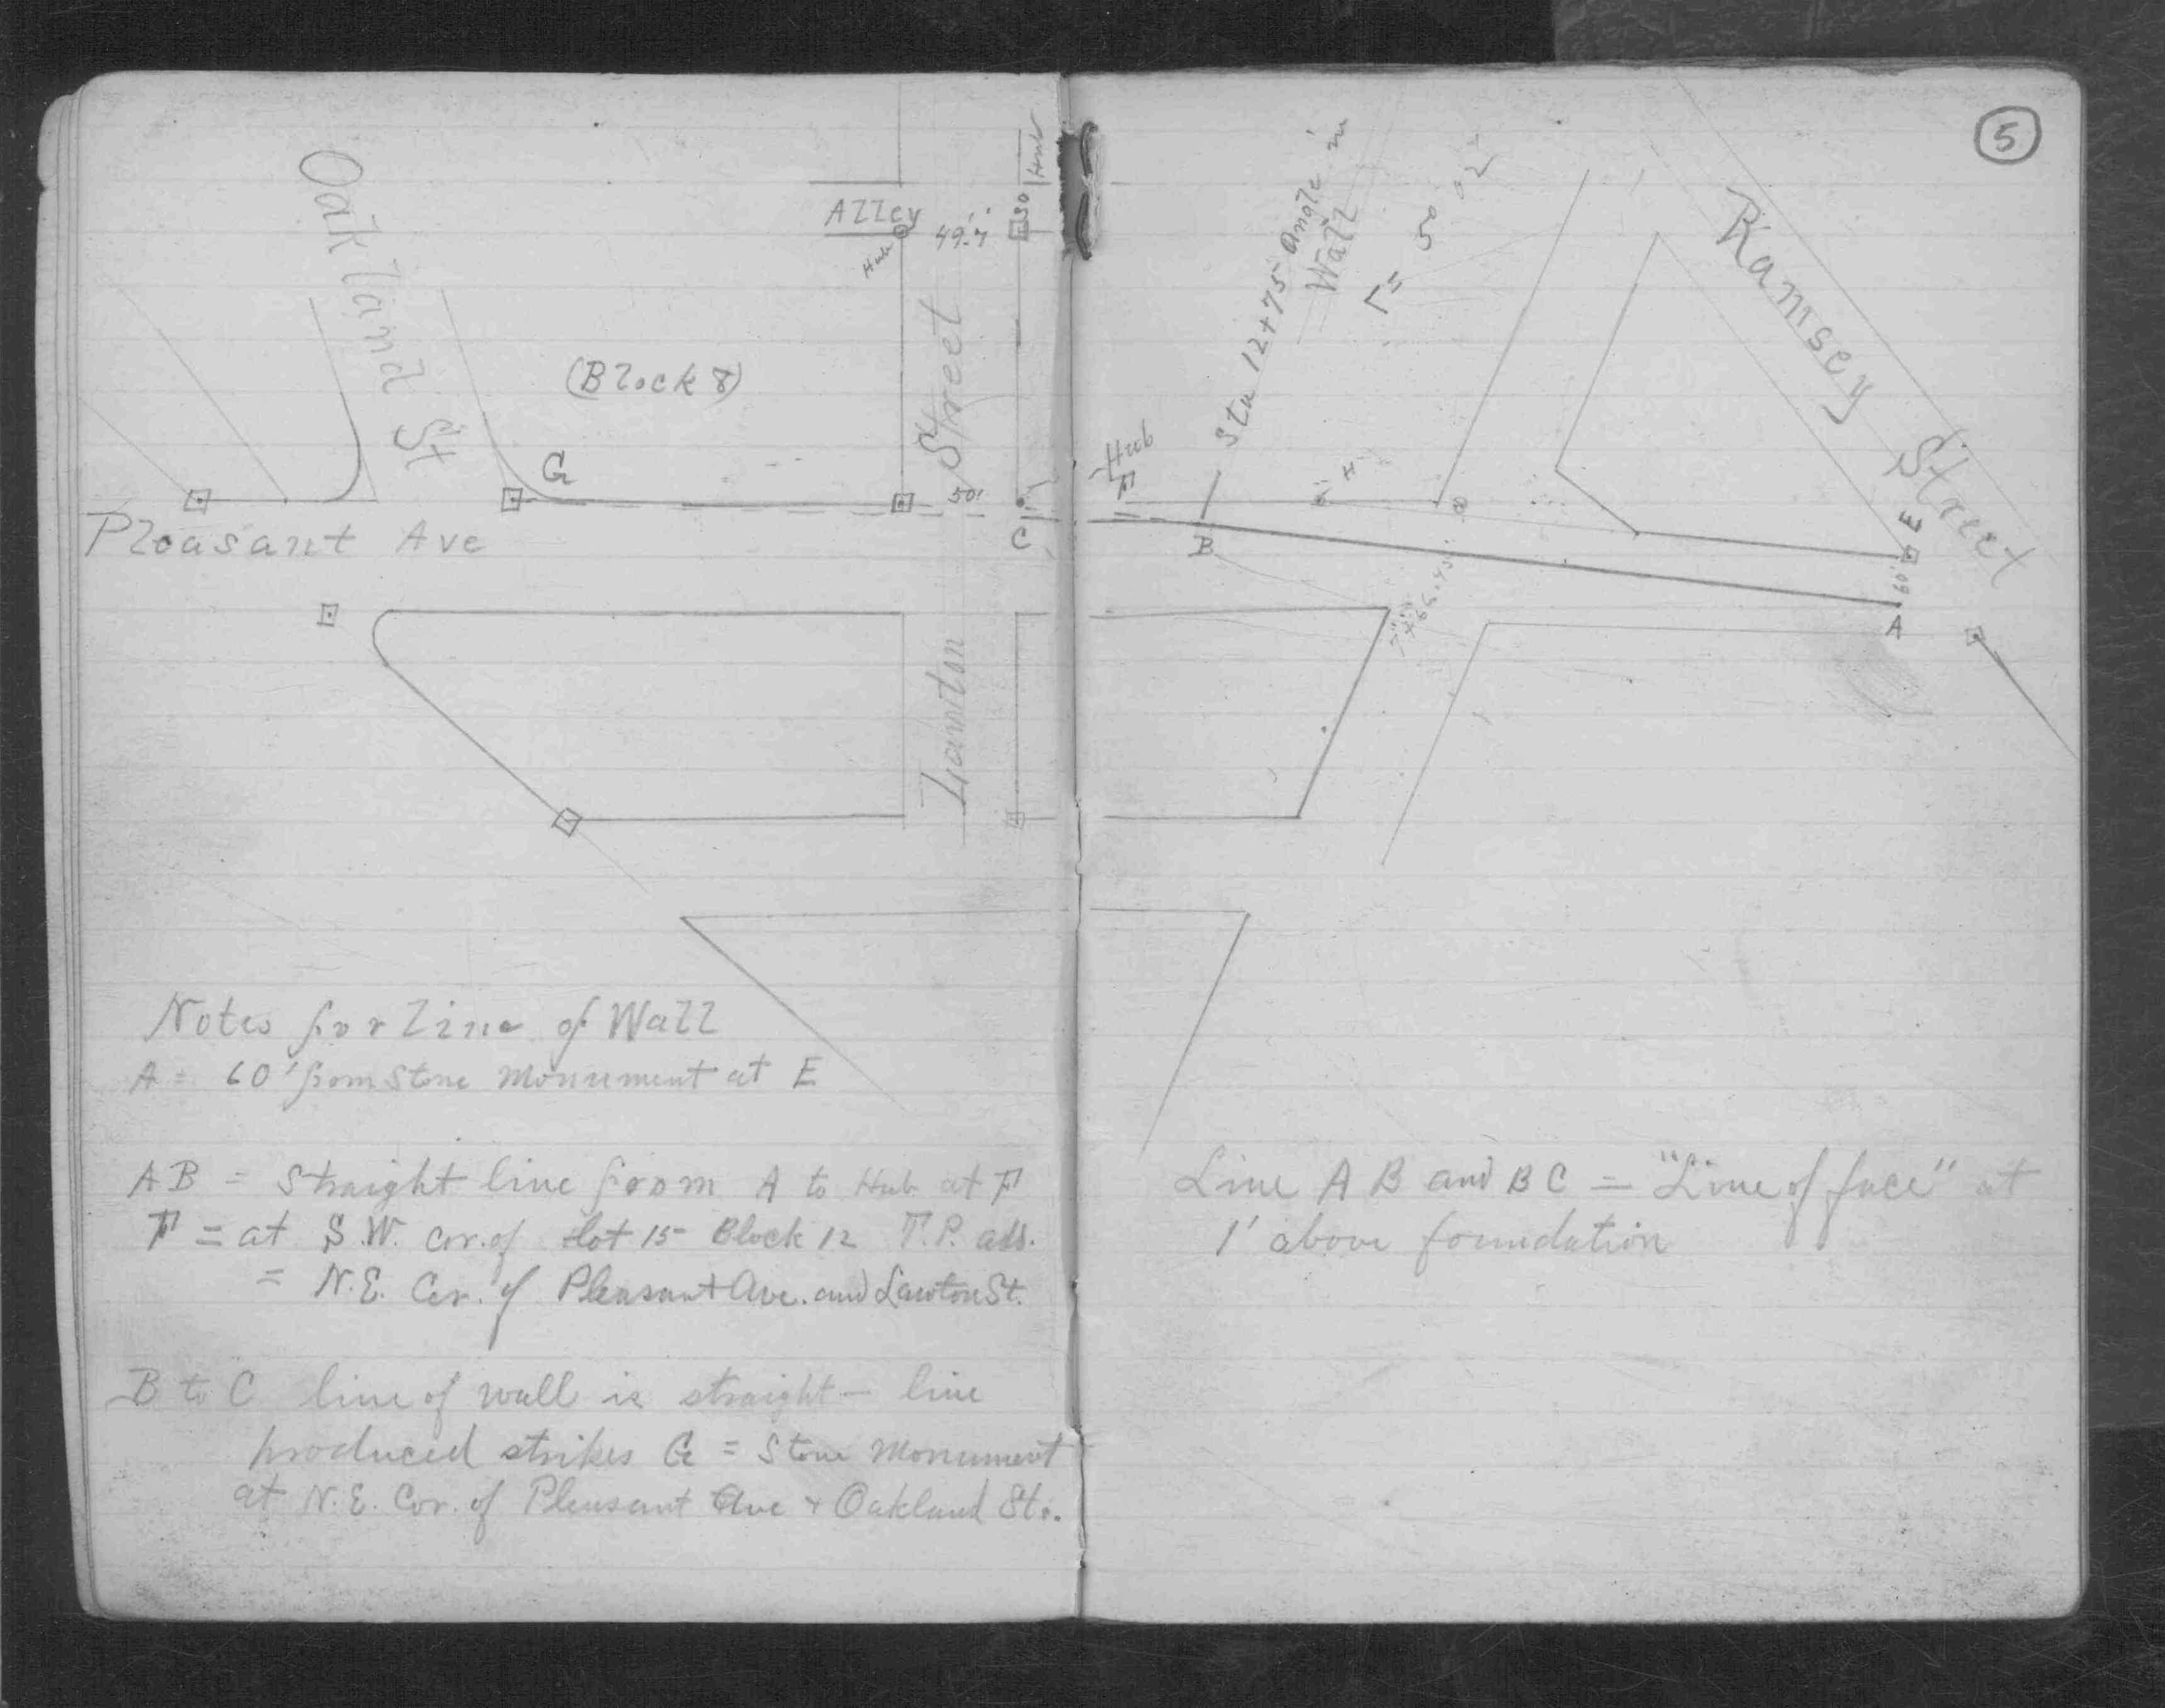 5
Oakland St
Alley
Hub
49.7'
30
Hub
(Block 8)
Street
G
50'
C
Pleasant Ave
Lawton
Hub
F
B
Sta 12+75 Angle in
Wall
H
Ramsey Street
E
60'
A
Notes for Line of Wall
A = 60' from Stone Monument at E
AB = Straight line from A to Hub at F
F = at S.W. cor. of Lot 15 Block 12 T.P. add.
= N.E. Cor. of Pleasant Ave. and Lawton St.
B to C line of wall is straight - line
produced strikes G = Stone Monument
at N.E. Cor. of Pleasant Ave + Oakland Sts.
Line AB and BC = "Line of face" at
1' above foundation